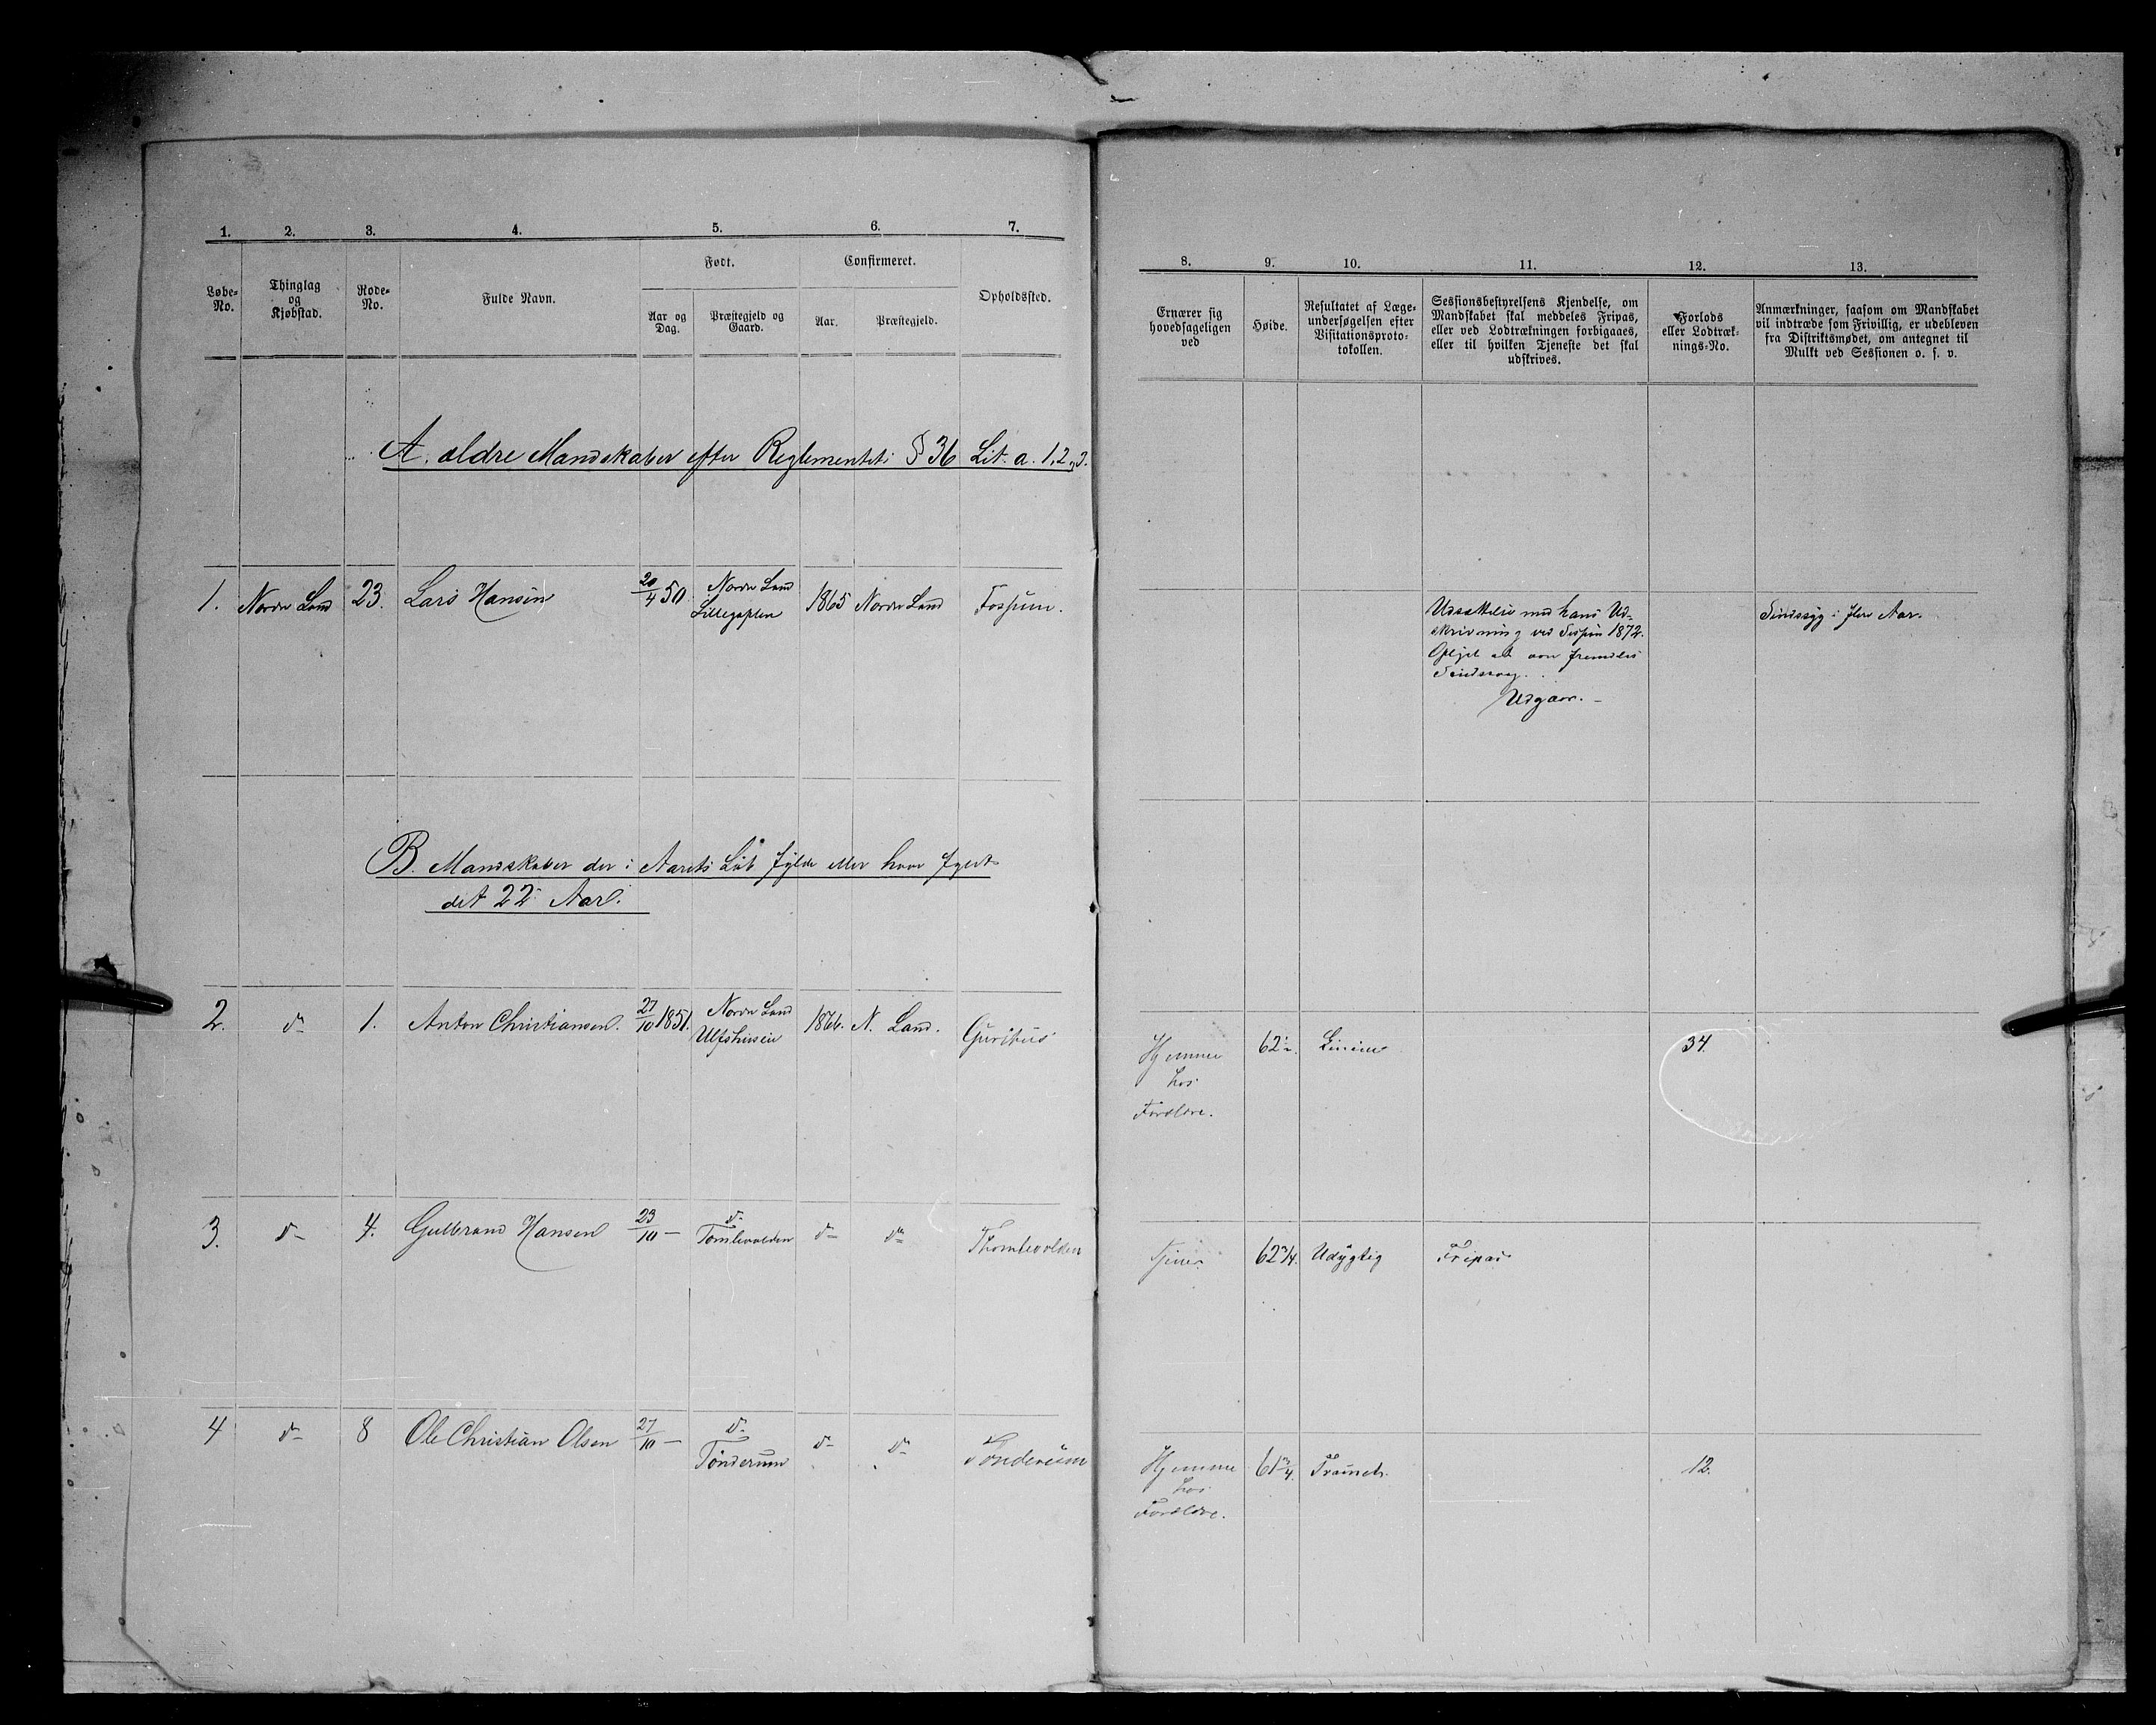 1. 2. 3. 4. 5. 6. 7.
Løbe-No. Thinglag og Kjøbstad. Rode-No. Fulde Navn. Født. Confirmeret. Opholdssted.
Aar og Dag. Præstegjeld og Gaard. Aar. Præstegjeld.
A. ældre Mandskaber efter Reglementets § 36 Lit. a. 1, 2 og 3.
1. Nordre Land 23. Lars Hansen 20/4 50 Nordre Land 1865 Nordre Land Fossum.
B. Mandskaber der i Aarets Løb fylde eller have fyldt
det 22de Aar.
2. do 1. Anton Christiansen. 27/10 1851. Nordre Land 1866. N. Land.
Ulfshusen
3. do 4. Gulbrand Hansen 23/10 — do do do Thomlevolden
Tomlevolden
4 do 8 Ole Christian Olsen 27/10 — do do do Tønderum
Tønderum
8. 9. 10. 11. 12. 13.
Ernærer sig
hovedsageligen
ved
Høide.
Resultatet af Læge-
undersøgelsen efter
Visitationsproto-
tokollen.
Sessionsbestyrelsens Kjendelse, om
Mandskabet skal meddeles Fripas,
eller ved Lodtrækningen forbigaaes,
eller til hvilken Tjeneste det skal
udskrives.
Forlods
eller Lodtræk-
nings-No.
Anmærkninger, saasom om Mandskabet
vil indtræde som Frivillig, er udebleven
fra Distriktsmødet, om antegnet til
Mulkt ved Sessionen o. s. v.
Udsættelse med hans Ud-
skrivning ved Session 1872.
Oplyst at være fremdeles
Sindssyg.
Udgaar. —
Sindssyg i flere Aar.
Hjemme 62½. Linien 34.
hos
Forældre.
Tjener 62¾. Udygtig Fripas
Hjemme 61¾. Trainet. 12.
hos
Forældre.